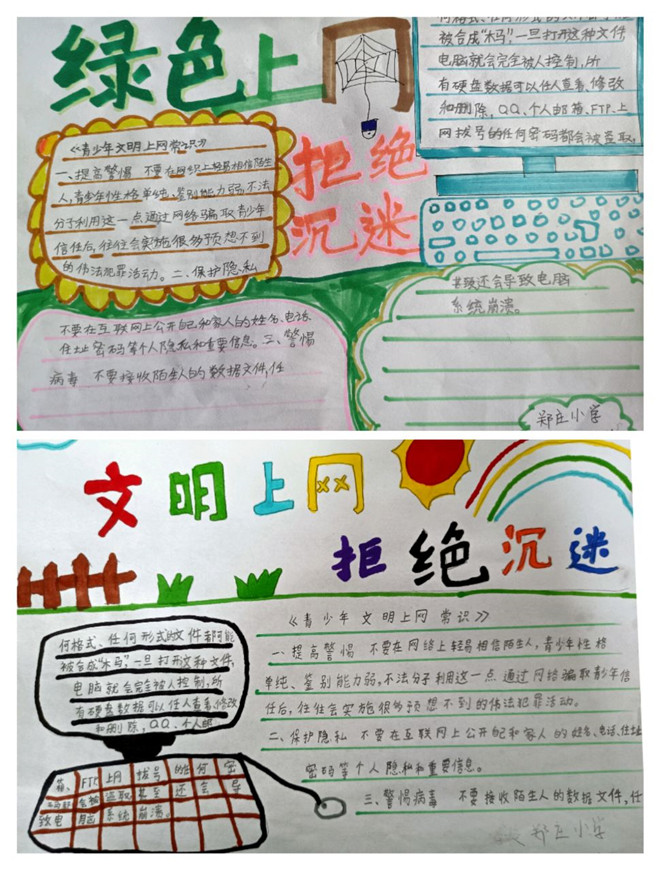 绿色上网
拒绝
沉迷
《青少年文明上网常识》
一、提高警惕 不要在网络上轻易相信陌生
人，青少年性格单纯、鉴别能力弱，不法
分子利用这一点通过网络骗取青少年
信任后，往往会实施很多预想不到
的伟法犯罪活动。二、保护隐私
不要在互联网上公开自己和家人的姓名、电话、
住址密码等个人隐私和重要信息。三、警惕
病毒 不要接收陌生人的数据文件，任
何格式、任何形式的文件都可能
被合成“木马”，一旦打开这种文件，
电脑就会完全被人控制，所
有硬盘数据可以任人查看、修改
和删除，QQ、个人邮箱、FTP、上
网拨号的任何密码都会被盗取，
甚至还会导致电脑
系统崩溃。
郑庄小学
文明上网
拒绝沉迷
《青少年文明上网常识》
一、提高警惕 不要在网络上轻易相信陌生人，青少年性格
单纯、鉴别能力弱，不法分子利用这一点通过网络骗取青少年信
任后，往往会实施很多预想不到的伟法犯罪活动。
二、保护隐私 不要在互联网上公开自己和家人的姓名、电话、住址
密码等个人隐私和重要信息。
三、警惕病毒 不要接收陌生人的数据文件，任
何格式、任何形式的文件都可能
被合成“木马”，一旦打开这种文件，
电脑就会完全被人控制，所
有硬盘数据可以任人查看、修改
和删除，QQ、个人邮
箱、FTP、上网拨号的任何密
码都会被盗取甚至还会导
致电脑系统崩溃。
郑庄小学